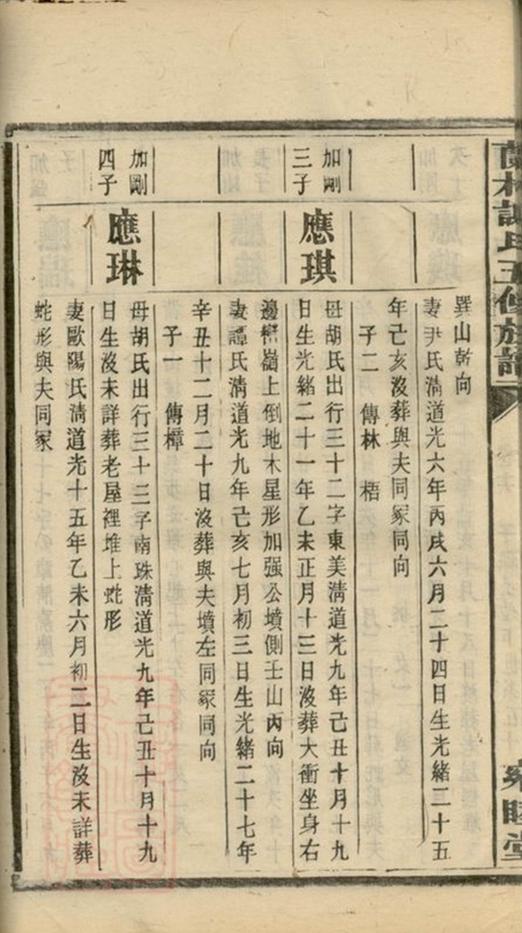 譚氏五修族譜
睦堂
巽山乾向
妻尹氏淸道光六年丙戌六月二十四日生光緒二十五
年己亥沒葬與夫同冢同向
子二　傳林　梧
加剛
三子
應琪
母胡氏出行三十二字東美淸道光九年己丑十月十九
日生光緒二十一年乙未正月十三日沒葬大衝坐身右
邊巒嶺上倒地木星形加强公墳側壬山丙向
妻譚氏淸道光九年己亥七月初三日生光緒二十七年
辛丑十二月二十日沒葬與夫墳左同冢同向
子一　傳樟
加剛
四子
應琳
母胡氏出行三十三字南珠淸道光九年己丑十月十九
日生沒未詳葬老屋裡堆上蛇形
妻歐陽氏淸道光十五年乙未六月初二日生沒未詳葬
蛇形與夫同冢